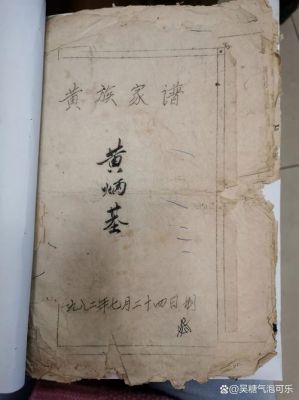 黄族家谱
黄炳基
一九八二年七月二十四日制
@吴糖气泡可乐